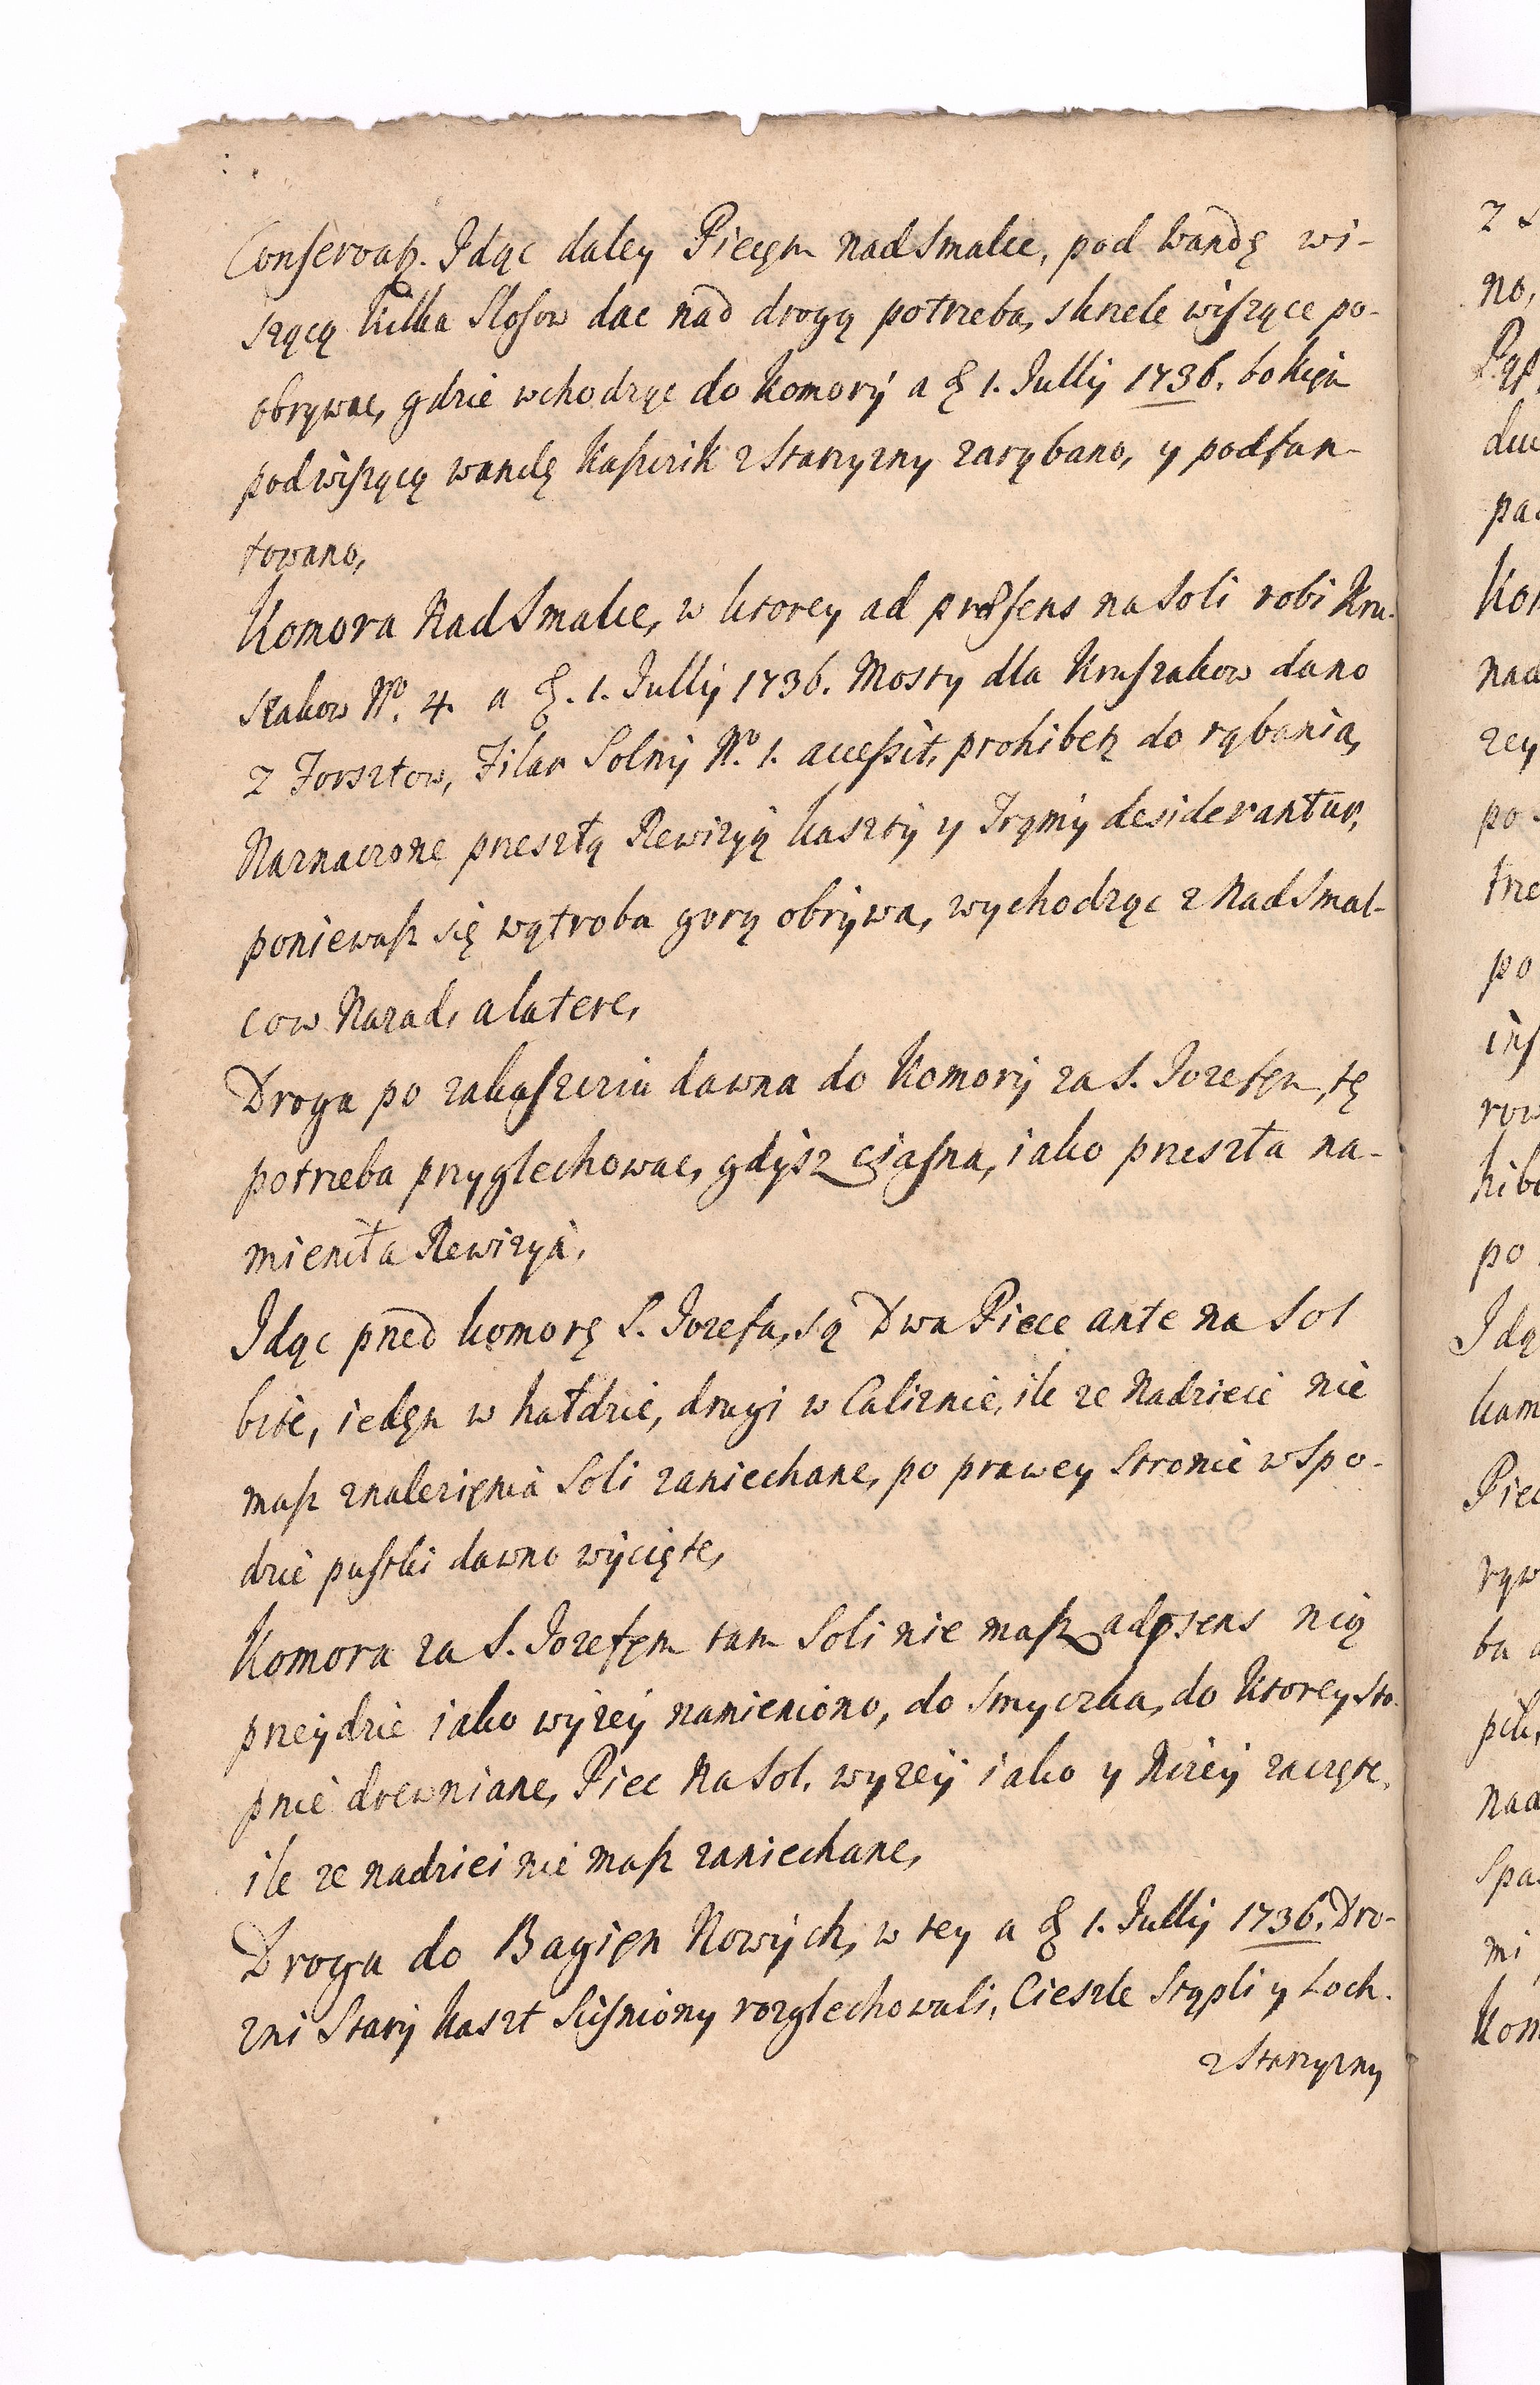 Conservatz. Idąc daley Piecęm nad Smalce, pod Wandę wi-
szącą kilka Stosow dac nad drogą potrzeba, skrzele wiszące po-
obrywac, gdzie wchodząc do Komorÿ a 1. Jullij 1736. bokięm
pod wiszącą wandę Kaszcik z Starzyzny zarąbano, y podfan-
towano,
Komora Nad Smalce, w ktorey ad præsens na Soli robi Kru-
szakow No. 4. a 1. Jullij 1736. Mosty dla Kruszakow dano
z Forsztow, Filar Solnÿ No. 1. accessit, prohibetz do rąbania,
Naznaczone przeszłą Rewizyą kasztÿ y Trąmÿ desiderantur,
poniewasz się wątroba gorą obrÿwa, wychodząc z Nad Smal-
cow Nazad, a latere,
Droga po zakaszcziu dawna do Komorÿ za S. Jozefęm, tę
potrzeba przyglechowac, gdÿsz ciasna, iako przeszła na-
mieniła Rewizya,
Idąc przed komorę S. Jozefa, są Dwa Piece ante na Sol
bite, iedęn w hałdzie, drugi w Caliznie, ile ze Nadzieie nie
masz znalezięnia Soli zaniechane, po prawey Stronie w Spo-
dzie pustki dawno wÿcięte,
Komora za S. Jozefęm tam Soli nie masz ad psens nią
przeÿdzie iako wÿzeÿ namieniono, do Smyczka, do ktorey sto-
pnie drewniane, Piec Na Sol. wyzeÿ iako y Nizeÿ zaczęte,
ile ze nadziei nie masz zaniechane,
Droga do Bagięn Nowÿch, w tey a 1. Jullij 1736. Dro-
zni Starÿ kaszt Sciśniony rozglechowali, Cieszle Stąpli y Loch.
z Starzyzny
z
no,
due
pa
Kom
nad
zey
po
trze
po
ins
row
hibe
po
Idą
kam
Piec
ryw
ba
pilk
nad
Spa
mi
Kom